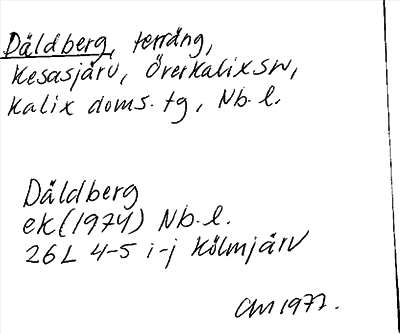 Däldberg, terräng,
Kesasjärv, Överkalix sn,
Kalix doms. tg, Nb. l.
Däldberg
ek (1974) Nb. l.
26L 4-5 i-j Kölmjärv
CM 1977.